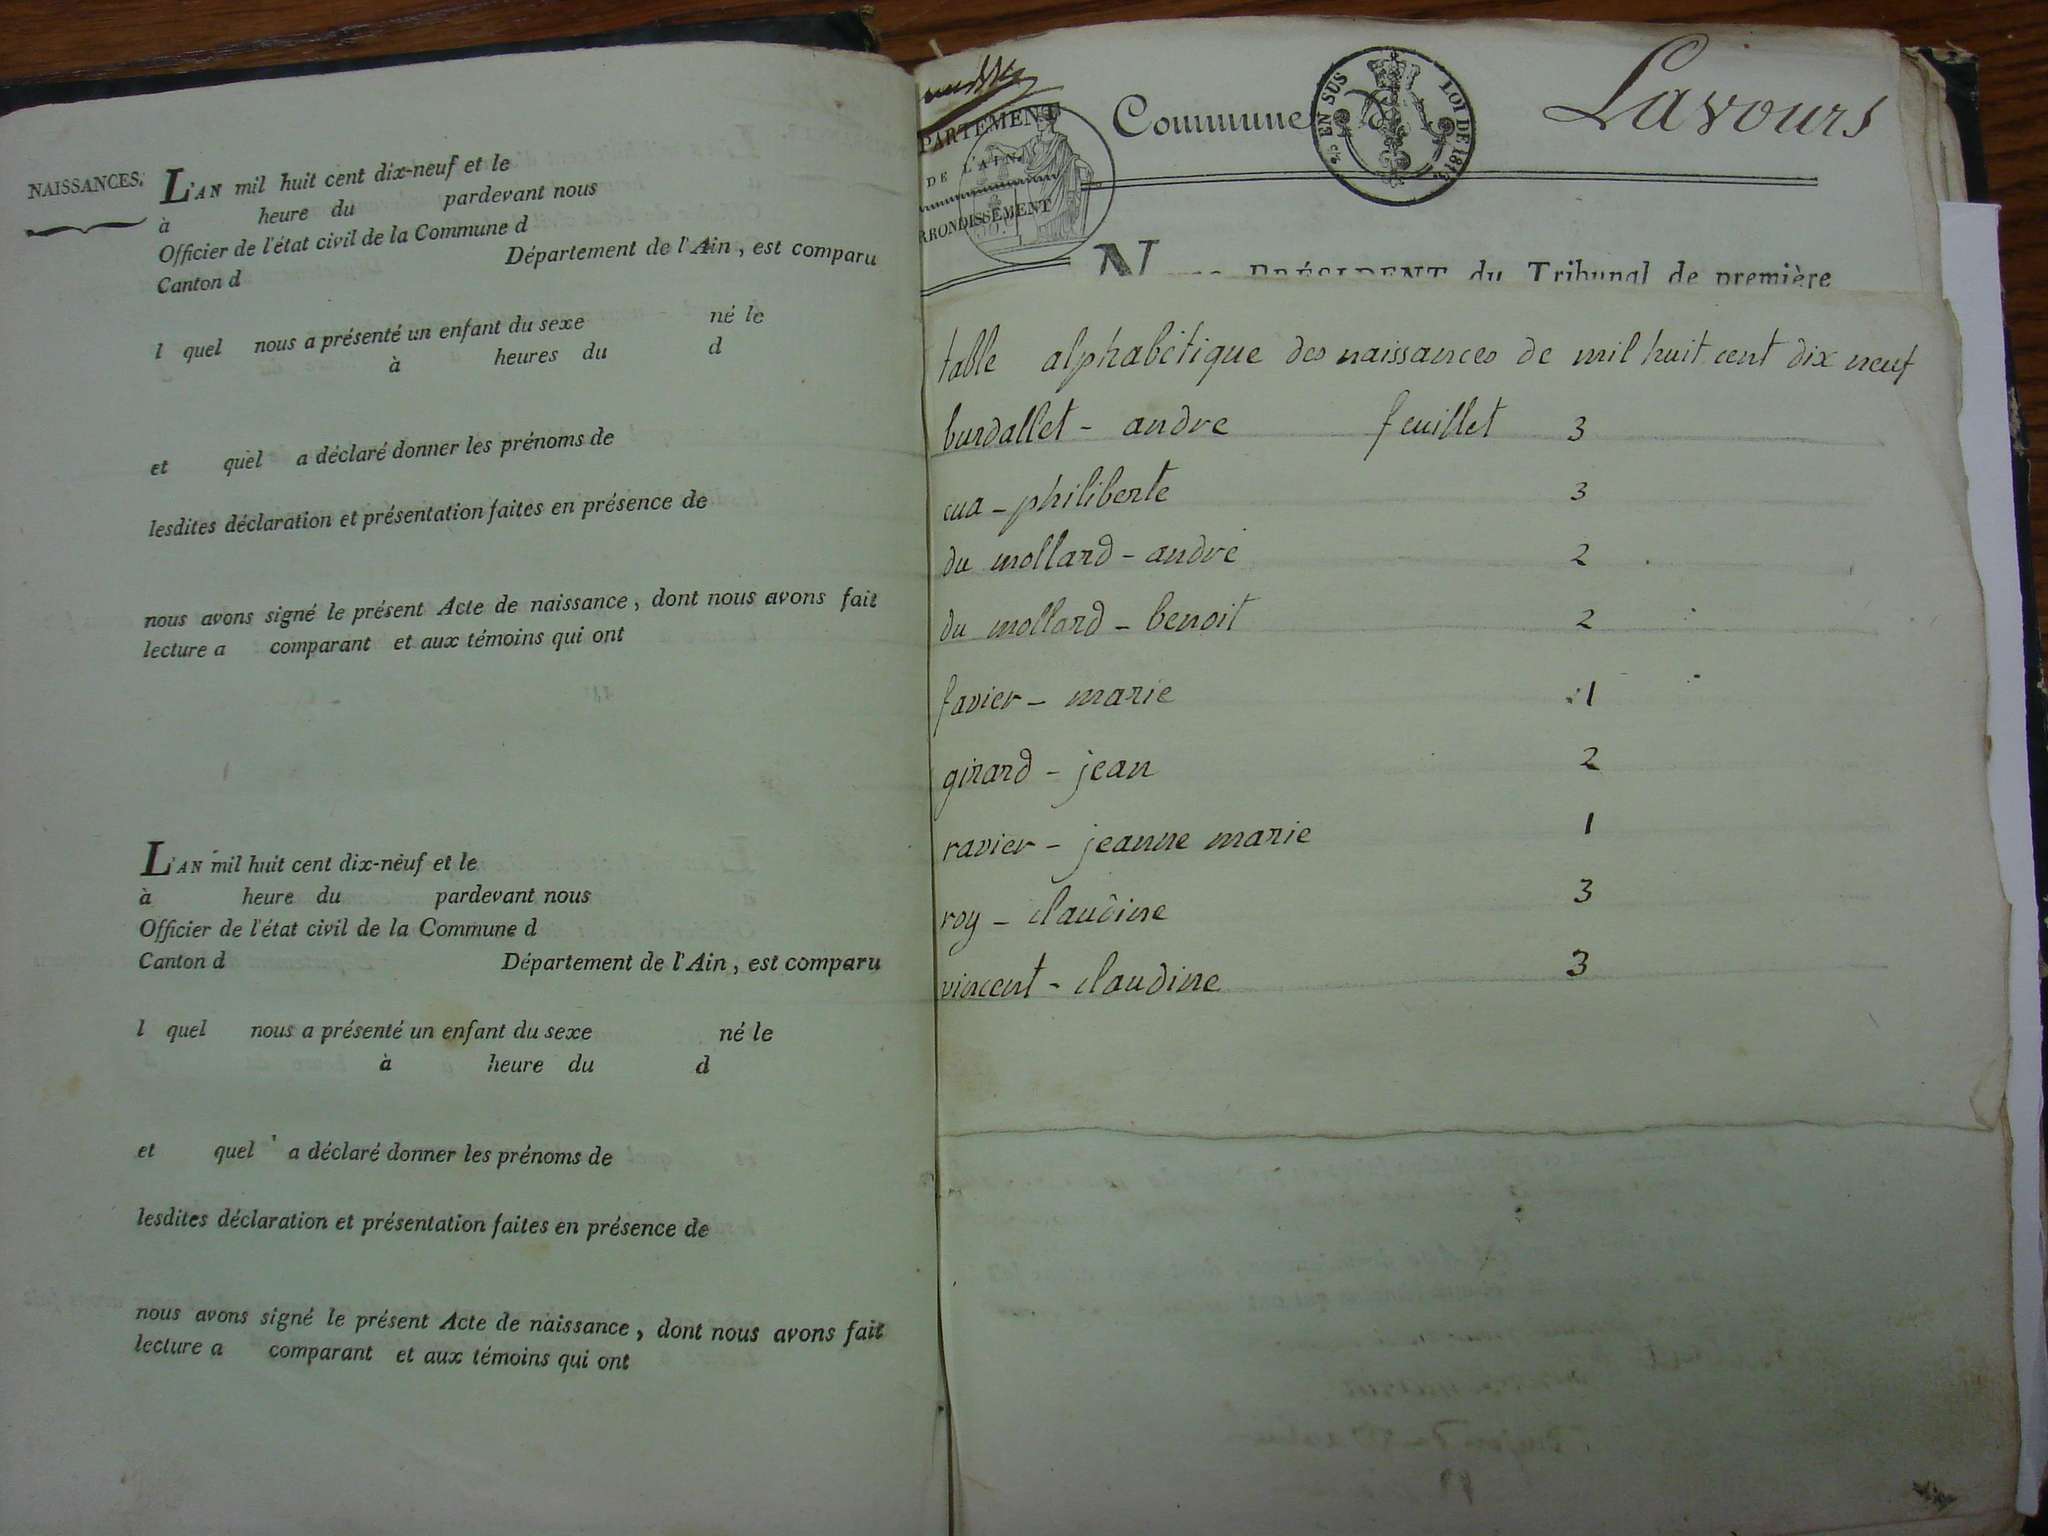 NAISSANCES.
L'AN mil huit cent dix-neuf et le
à heure du pardevant nous
Officier de l'état civil de la Commune d
Canton d Département de l'Ain, est comparu
l quel nous a présenté un enfant du sexe né le
à heures du d
et quel a déclaré donner les prénoms de
lesdites déclaration et présentation faites en présence de
nous avons signé le présent Acte de naissance, dont nous avons fait
lecture a comparant et aux témoins qui ont
L'AN mil huit cent dix-neuf et le
à heure du pardevant nous
Officier de l'état civil de la Commune d
Canton d Département de l'Ain, est comparu
l quel nous a présenté un enfant du sexe né le
à heure du d
et quel a déclaré donner les prénoms de
lesdites déclaration et présentation faites en présence de
nous avons signé le présent Acte de naissance, dont nous avons fait
lecture a comparant et aux témoins qui ont
PARTEMENT
DE L'AIN.
RRONDISSEMENT
Commune Lavours
EN SUS LOI DE
PRÉSIDENT du Tribunal de première
table alphabétique des naissances de mil huit cent dix neuf
burdallet - andre feuillet 3
cua - philiberte 3
du mollard - andré 2
du mollard - benoit 2
favier - marie 1
girard - jean 2
ravier - jeanne marie 1
roy - claudine 3
vincent - claudine 3